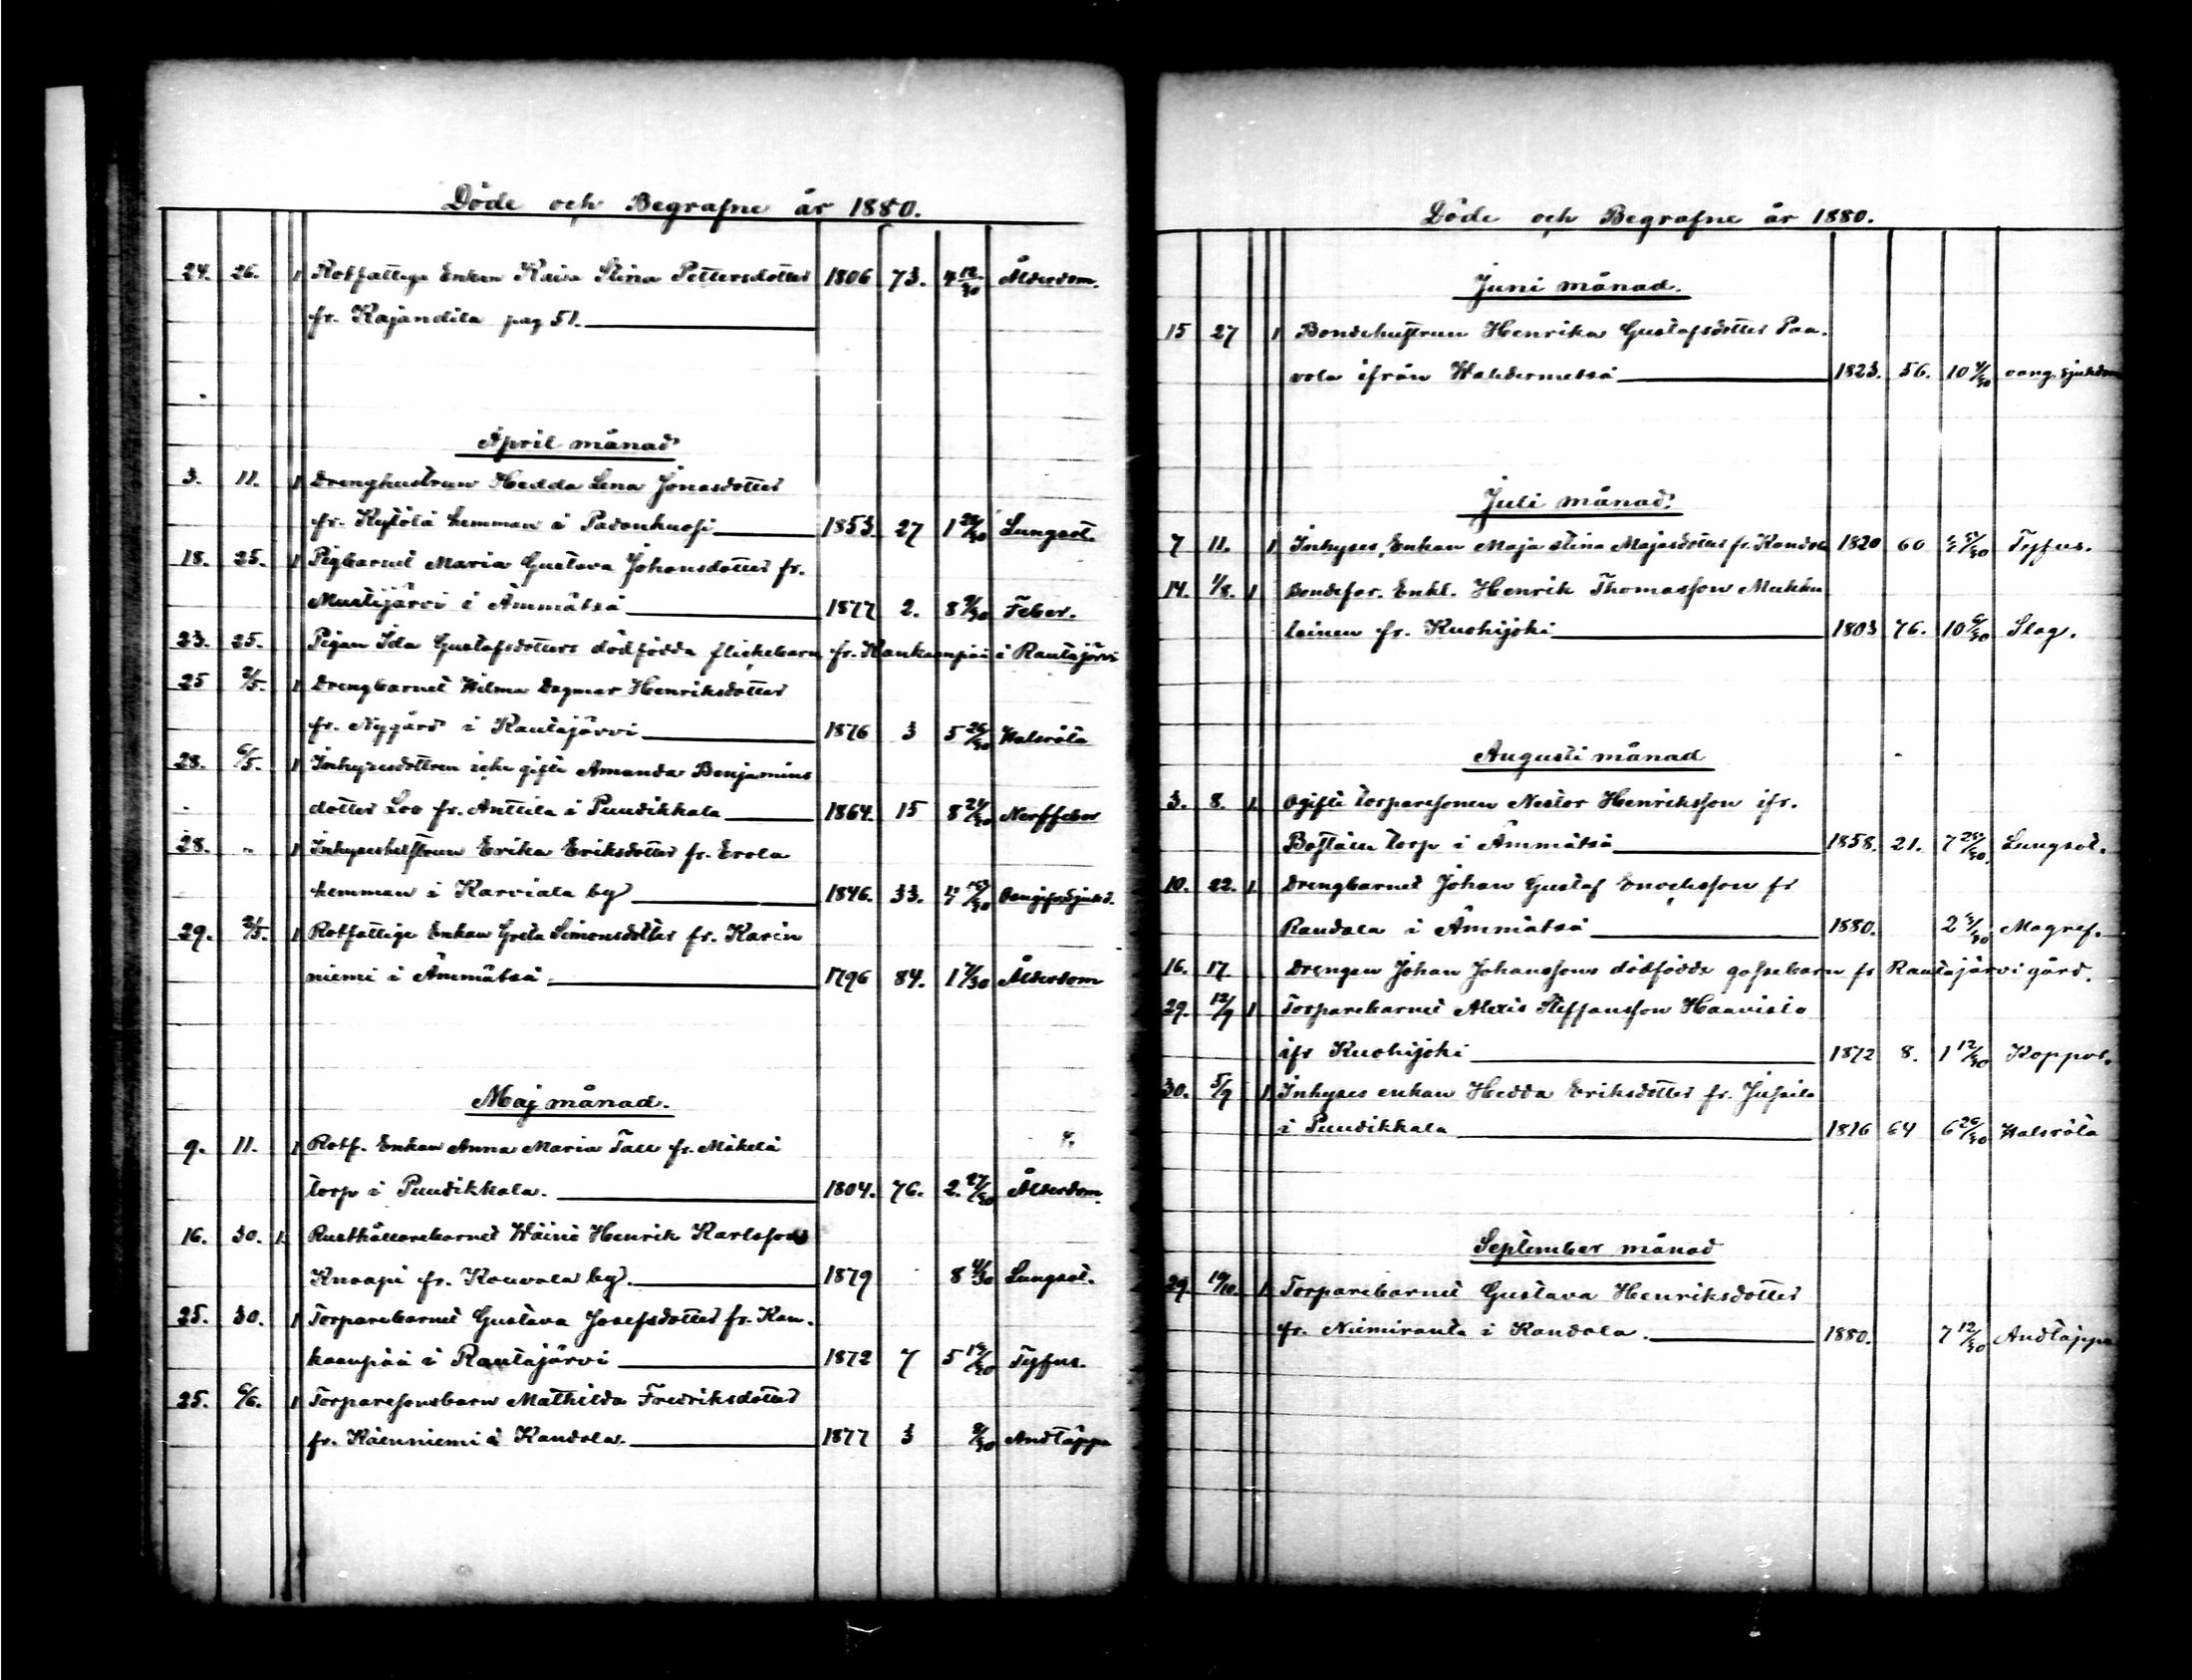 Döde och Begrafne år 1880.
24. 26. 1 Rotfattige Enkan Kaisa Stina Pettersdotter 1806 73. 12/30 Ålderdom.
fr. Kajandila pag 51.
April månad
3. 11. 1 Drenghustrun Hedda Lena Jonasdotter
fr. Kylölä hemman i Padankuosi 1853. 27 1 28/30 Lungsot.
18. 25. 1 Pigbarnet Maria Gustava Johansdotter fr.
Mustijärvi i Ämmätsä 1877 2. 8 /30 Feber.
23. 25. Pigan Ida Gustafsdotters dödfödda flickebarn fr. Kankaanpää i Rautajärvi
25 2/5. 1 Drengbarnet Wilma Dagmar Henriksdotter
fr. Nygård i Rautajärvi 1876 3 5 26/30 Halsröta
28. 6/5. 1 Inhysesdottren icke gifte Amanda Benjamins
dotter Loo fr. Anttila i Puudikkala 1864. 15 8 21/30 Nerffeber
28. " 1 Inhyseshustrun Erika Eriksdotter fr. Erola
hemman i Karviala by 1846. 33. /30
29. 2/5. 1 Rotfattige Enkan Greta Simonsdotter fr. Karin
niemi i Ämmätsä. 1796 84. 1 /30 Ålderdom
Maj månad.
9. 11. 1 Rotf. Enkan Anna Maria Tall fr. Mäkelä
torp i Puudikkala. 1804. 76. 2. 27/30 Ålderdom.
16. 30. 1. Rusthållarebarnet Wäinö Henrik Karlsson
Knaapi fr. Kouvala by. 1879 8 4/30 Lungsot.
25. 30. 1 Torparebarnet Gustava Josefsdotter fr. Kan-
kaanpää i Rautajärvi 1872 7 5 /30 Tyfus.
25. 6/6. 1 Torparesonsbarn Mathilda Fredriksdotter
fr. Käenniemi i Kandola. 1877 3 /30 Andtäppa
Döde och Begrafne år 1880.
Juni månad.
15 27 1 Bondehustrun Henrika Gustafsdotter Paa-
vola ifrån Wahdermetsä 1823. 56. 10 /30 oang. sjukdom
Juli månad.
7 11. 1 Inhyses Enkan Maja Stina Majasdotter fr. Kandola 1820 60 /30 Tyfus.
14. 1/8. 1 Bondefar. Enkl. Henrik Thomasson Mukku
lainen fr. Kuohijoki 1803 76. 10 /30 Slag.
Augusti månad
3. 8. 1. Ogifte torparesonen Nestor Henriksson ifr.
torp i Ämmätsä 1858. 21. 7 /30 Lungsot.
10. 22. 1. Drengbarnet Johan Gustaf Enocksson fr
Raudala i Ämmätsä 1880. 2 /30 Magref.
16. 17 Drengen Johan Johanssons dödfödde gossebarn fr Rautajärvi gård.
29. 12/9 1 Torparebarnet Alexis Steffansson Haavisto
ifr Kuohijoki 1872 8. 1 12/30 Koppor.
30. 5/9 1 Inhyses enkan Hedda Eriksdotter fr. Jussila
i Puudikkala 1816 64 6 26/30 Halsröta
September månad
29 10/10. 1. Torparebarnet Gustava Henriksdotter
fr. Niemiranta i Kandola. 1880. 7 12/30 Andtäppa